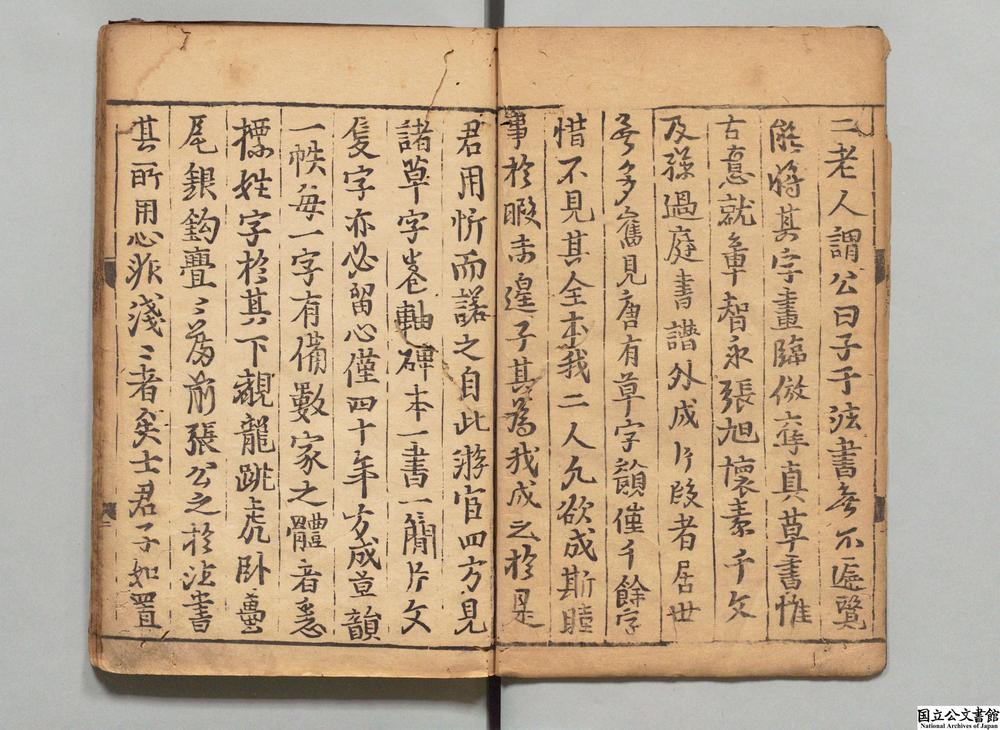 二老人謂公曰子于法書無不遍覽
能將其字畫臨倣奪真草書惟
古意就章智永張旭懷素千文
及孫過庭書譜外成片段者居世
無多舊見唐有草字韻僅千餘字
惜不見其全本我二人久欲成斯
事於暇未遑子其為我成之於是
君用忻而諾之自此游宦四方見
諸草字卷軸碑本一書一簡片文
隻字亦必留心僅四十年方成草韻
一帙每一字有備數家之體者悉
標姓字於其下觀龍跳虎臥蠆
尾銀鈎疊〻為前張公之於法書
其所用心非淺〻者矣士君子如置
国立公文書館
National Archives of Japan